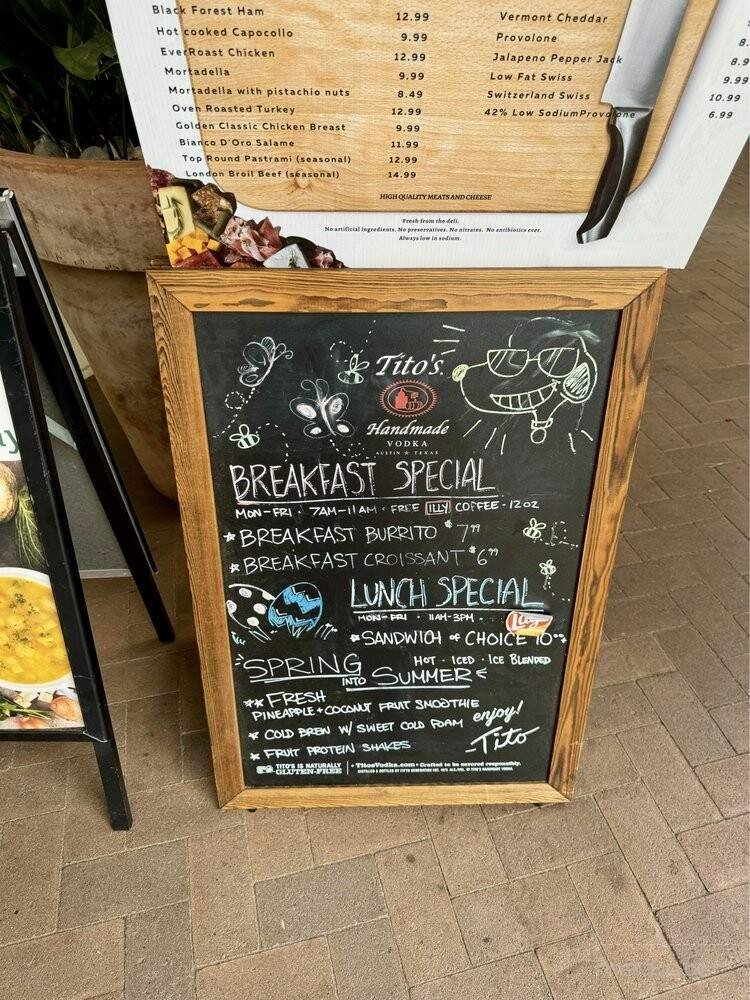 Black Forest Ham 12.99 Vermont Cheddar
Hot cooked Capocollo 9.99 Provolone
EverRoast Chicken 12.99 Jalapeno Pepper Jack 8.9
Mortadella 9.99 Low Fat Swiss 9.99
Mortadella with pistachio nuts 8.49 Switzerland Swiss 10.99
Oven Roasted Turkey 12.99 42% Low SodiumProvolone 6.99
Golden Classic Chicken Breast 9.99
Bianco D'Oro Salame 11.99
Top Round Pastrami (seasonal) 12.99
London Broil Beef (seasonal) 14.99
HIGH QUALITY MEATS AND CHEESE
Fresh from the deli.
No artificial ingredients. No preservatives. No nitrates. No antibiotics ever.
Always low in sodium.
Tito's
Handmade
VODKA
AUSTIN ★ TEXAS
BREAKFAST SPECIAL
MON-FRI · 7AM-11AM · FREE ILLY COFFEE · 12 OZ
★ BREAKFAST BURRITO $7.99
★ BREAKFAST CROISSANT $6.99
LUNCH SPECIAL
MON-FRI · 11AM-3PM
Lay's
★ SANDWICH of CHOICE 10
HOT · ICED · ICE BLENDED
SPRING INTO SUMMER
★★ FRESH
PINEAPPLE + COCONUT FRUIT SMOOTHIE
★ COLD BREW W/ SWEET COLD FOAM
★ FRUIT PROTEIN SHAKES
enjoy!
-Tito
TITO'S IS NATURALLY GLUTEN-FREE
• TitosVodka.com • Crafted to be savored responsibly.